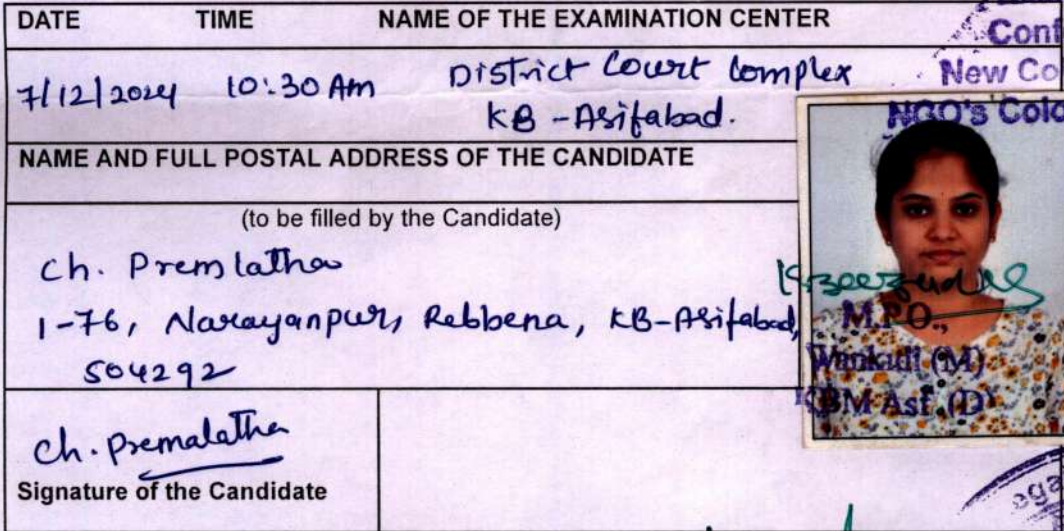 DATE TIME NAME OF THE EXAMINATION CENTER
Conf
7/12/2024 10:30 Am District Court Complex
New Co
KB - Asifabad.
NGO's Colo
NAME AND FULL POSTAL ADDRESS OF THE CANDIDATE
(to be filled by the Candidate)
Ch. Premlatha
1-76, Narayanpur, Rebbena, KB-Asifabad,
504292
M.P.O.,
Wankidi (M)
KBM Asf. (D)
Ch. Premalatha
Signature of the Candidate